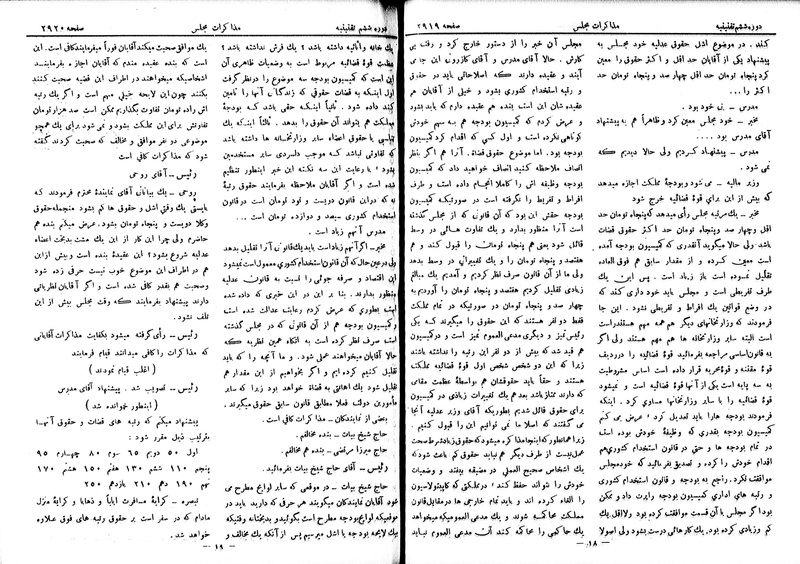 دوره ششم تقنینیه
مذاکرات مجلس
صفحه ۲۹۱۹
کنند. در موضوع اشل حقوق عدلیه خود مجلس به
پیشنهاد یکی از آقایان حد اقل و حد اکثر حقوق را معین
کرد پنجاه تومان حد اقل چهار صد و پنجاه تومان حد
اکثر را ...
مدرس - بی خود بود.
مخبر - خود مجلس معین کرد و ظاهراً هم به پیشنهاد
آقای مدرس بود ...
مدرس - پیشنهاد کردیم ولی حالا دیدیم که
نمی شود.
وزیر مالیه - می شود و بودجۀ مملکت اجازه میدهد
که بیش از این برای قوۀ قضائیه خرج شود
مخبر - یك مرتبه مجلس رأی میدهد که پنجاه تومان حد
اقل وچهار صد وپنجاه تومان حد اکثر حقوق قضات
باشد ولی حالا میگویند آنقدر که کمیسیون بودجه آمده
است معین کرده و از مقدار سابق هم فوق‌العاده
تقلیل نموده است باز زیاد است. پس این یك
طرف تفریطی است و مجلس باید خود داری کند که
در وضع قوانین یك افراط و تفریطی نشود. این جا
فرمودند که وزارتخانهای دیگر هم همه مهم هستند راست
است البته سایر وزارتخانه ها هم مهم هستند ولی اگر
به قانون اساسی مراجعه بفرمائید قوۀ قضائیه را در ردیف
قوۀ مقننه و قوۀ مجریه قرار داده است اساس مشروطیت
به سه پایه است یکی از آنها قوۀ قضائیه است و نمیشود
قوۀ قضائیه را با سایر وزارتخانهای مساوی کرد. اینکه
فرمودند بودجه هارا باید تعدیل کرد؛ عرض می کنم
کمیسیون بودجه بقدری که وظیفۀ خودش بوده است
در تمام بودجه ها و حتی در قانون استخدام کشوری هم
اقدام خودش را کرده و تصدیق بفرمائید که خود مجلس
موافقت نکرد. راجع به بودجه و قانون استخدام کشوری
و رتبه های اداری کمیسیون بودجه راپرت داد و ممکن
بود اگر مجلس با آن قسمت موافقت کرده بود ولااقل یك
کم وزیادی کرده بود یك کارهائی درست بشود ولی اصولا
مجلس آن خبر را از دستور خارج کرد و رفت پی
کارش. حالا آقای مدرس و آقای کازرونی این جا می
آیند و عقیده دارند که اصلاحاتی باید در حقوق
و رتبه استخدام کشوری بشود و خیلی از آقایان هم
عقیده شان این است بنده هم عقیده دارم که باید بشود
و عرض کردم که کمیسیون بودجه هم به سهم خودش
کوتاهی نکرده است و اول کسی که اقدام کرد کمیسیون
بودجه بود. اما موضوع حقوق قضاة. آنرا هم اگر نظر
انصاف ملاحظه کنید انصاف خواهید داد که کمیسیون
بودجه وظیفه اش را کاملا انجام داده است و طرف
افراط و تفریط را نگرفته است در صورتیکه کمیسیون
بودجه حقش این بود که آن قانونی که از مجلس گذشته
است آنرا منظور بدارد و یك تفاوت هائی در وسط
قائل شود یعنی هم پنجاه تومان را قبول کند و هم
هفتصد و پنجاه تومان را و یك تغییراتی در وسط بدهد
ولی ما از آن قانون صرف نظر کردیم و آمدیم یك مبالغ
زیادی تقلیل کردیم هفتصد و پنجاه تومان را آوردیم به
چهار صد و پنجاه تومان در صورتیکه در تمام مملکت
فقط دو نفر هستند که این حقوق را میگیرند که یکی
رئیس تمیز و دیگری مدعی العموم تمیز است و در قانون
هم قید شد که بیش از دو نفر این رتبه را نداشته باشند
زیرا که این دو شخص شخص اول قوۀ قضائیه
هستند و حقاً باید حقوقشان هم بواسطۀ عظمت مقامی
که دارند ممتاز باشد بعد هم یك تغییرات زیادی در کمیسیون
برای حقوق قائل شدیم بطوریکه آقای وزیر عدلیه آنجا
می گفتند که اصلا ما نمی توانیم این را قبول کنیم.
۱۸
دوره ششم تقنینیه
مذاکرات مجلس
صفحه ۲۹۲۰
یك خانه و اثاثیه داشته باشد؟ یك فرش نداشته باشد؟
عظمت قوۀ قضائیه مربوط است به وضعیات ظاهری آن
این است که کمیسیون بودجه سه موضوع را در نظر گرفت
اول اینکه به قضات حقوقی که زندگانی آنها را تأمین
کند داده شود. ثانیاً اینکه حقی باشد که بودجۀ
مملکت هم بتواند آن حقوق را بدهد. ثالثاً اینکه یك
تناسبی با حقوق اعضاء سایر وزارتخانه ها داشته باشد
که تفاوتی نباشد که موجب دلسردی سایر مستخدمین
بشود؛ با رعایت این سه نکته این خبر اینطور تنظیم
شده است و اگر آقایان ملاحظه بفرمایند حقوق رتبۀ
به که در این قانون دویست و نود تومان است در قانون
استخدام کشوری سیصد و دوازده تومان است ...
مدرس - آنهم زیاد است.
مخبر - اگر آنهم زیاد است باید یك قانونی آنرا تقلیل بدهد
ولی در عین حال که آن قانون استخدام کشوری معمول است نمیشود
این اقتصاد و صرفه جوئی را نسبت به قانون عدلیه
منظور بدارند. بنا بر این در این خبری که داده شده
است بطوری که عرض کردم رعایت عدالت شده است
و کمیسیون بودجه هم از آن قانونی که در مجلس گذشته
است صرف نظر کرده است به اتکاء همین نظریه که
حالا آقایان میخواهند عملی شود. و ما آنچه را که باید
تقلیل کنیم کرده ایم و اگر بخواهیم از این مقدار هم
تقلیل شود یك اهانتی به قضاة خواهد بود زیرا که سایر
مأمورین دولت فعلا مطابق قانون سابق حقوق میگیرند.
بعضی از نمایندگان - مذاکرات کافی است.
حاج شیخ بیات - بنده مخالفم.
حاج میرزا مرتضی - بنده هم مخالفم.
رئیس - آقای حاج شیخ بیات بفرمائید.
حاج شیخ بیات - در موقعی که سایر لوایح مطرح می
شود آقایان نمایندگان میگویند هر حرفی که دارید باید در
موقعیکه لوایح بودجه مطرح است بگوئید و بدبختانه وقتیکه
یك لایحه بودجه یا اشل میرسیم پس از آنکه یك مخالف و
یك موافق صحبت میکند آقایان فوراً میفرمایند کافی است
این است که بنده عقیده مندم که آقایان اجازه بفرمایند
اشخاصیکه میخواهند در اطراف این قضیه صحبت کنند
بکنند چون این لایحه خیلی مهم است و اگر یك رتبه
اش را ده تومان تفاوت بگذاریم ممکن است صد هزار تومان
تفاوتش برای این مملکت بشود و نمی شود برای یك همچو
موضوعی دو نفر موافق و مخالف که صحبت کردند گفته
شود که مذاکرات کافی است
رئیس - آقای روحی
روحی - یك بیاناتی آقای نمایندۀ محترم فرمودند که
بایستی یك وقتی اشل و حقوق ها کم بشود منجمله حقوق
وکلا دویست و پنجاه تومان بشود. عرض میکنم بنده هم
حاضرم ولی چرا این کار از این یك مشت بدبخت اعضاء
عدلیه شروع بشود؟ این عقیدۀ بنده است و بیش از این
هم در اطراف این موضوع خوب نیست حرف زده شود
وصحبت هم بقدر کافی شده است و اگر آقایان نظریاتی
دارند پیشنهاد بفرمایند که وقت مجلس بیش از این
تلف نشود.
رئیس - رأی گرفته میشود بکفایت مذاکرات آقایانی
که مذاکرات را کافی میدانند قیام فرمایند
( اغلب قیام نمودند )
رئیس - تصویب شد. پیشنهاد آقای مدرس
( اینطور خوانده شد )
پیشنهاد میکنم که رتبه های قضات و حقوق آنها
بترتیب ذیل مقرر شود:
اول ۵۰ دویم ۶۵ سوم ۸۰ چهارم ۹۵
پنجم ۱۱۰ ششم ۱۳۰ هفتم ۱۵۰ هشتم ۱۷۰
نهم ۱۹۰ دهم ۲۱۰ یازدهم ۲۵۰
تبصره - کرایۀ مسافرت ایاباً و ذهاباً و کرایۀ منزل
مادام که در سفر است بر حقوق رتبه های فوق علاوه
خواهد شد.
۱۹